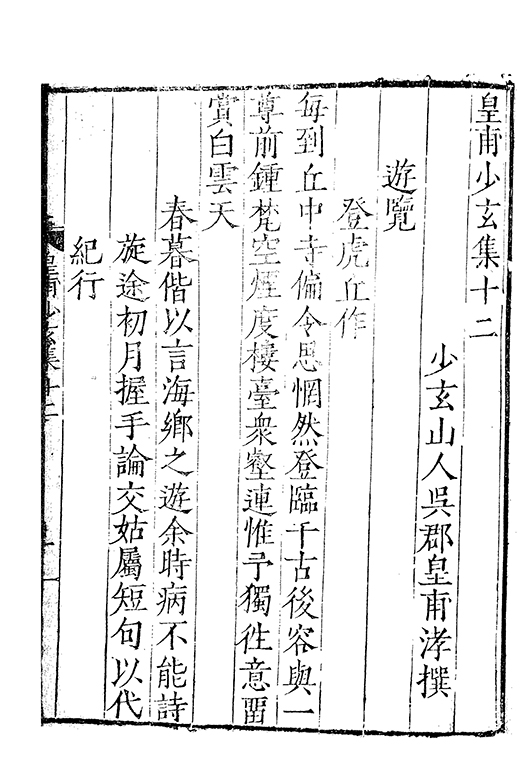 皇甫少玄集十二
少玄山人吳郡皇甫涍撰
遊覽
登虎丘作
每到丘中寺偏令思惘然登臨千古後容與一
尊前鍾梵空煙度樓臺衆壑連惟予獨徃意畱
賞白雲天
春暮偕以言海鄉之遊余時病不能詩
旋途初月握手論交姑屬短句以代
紀行
皇甫少玄集十二